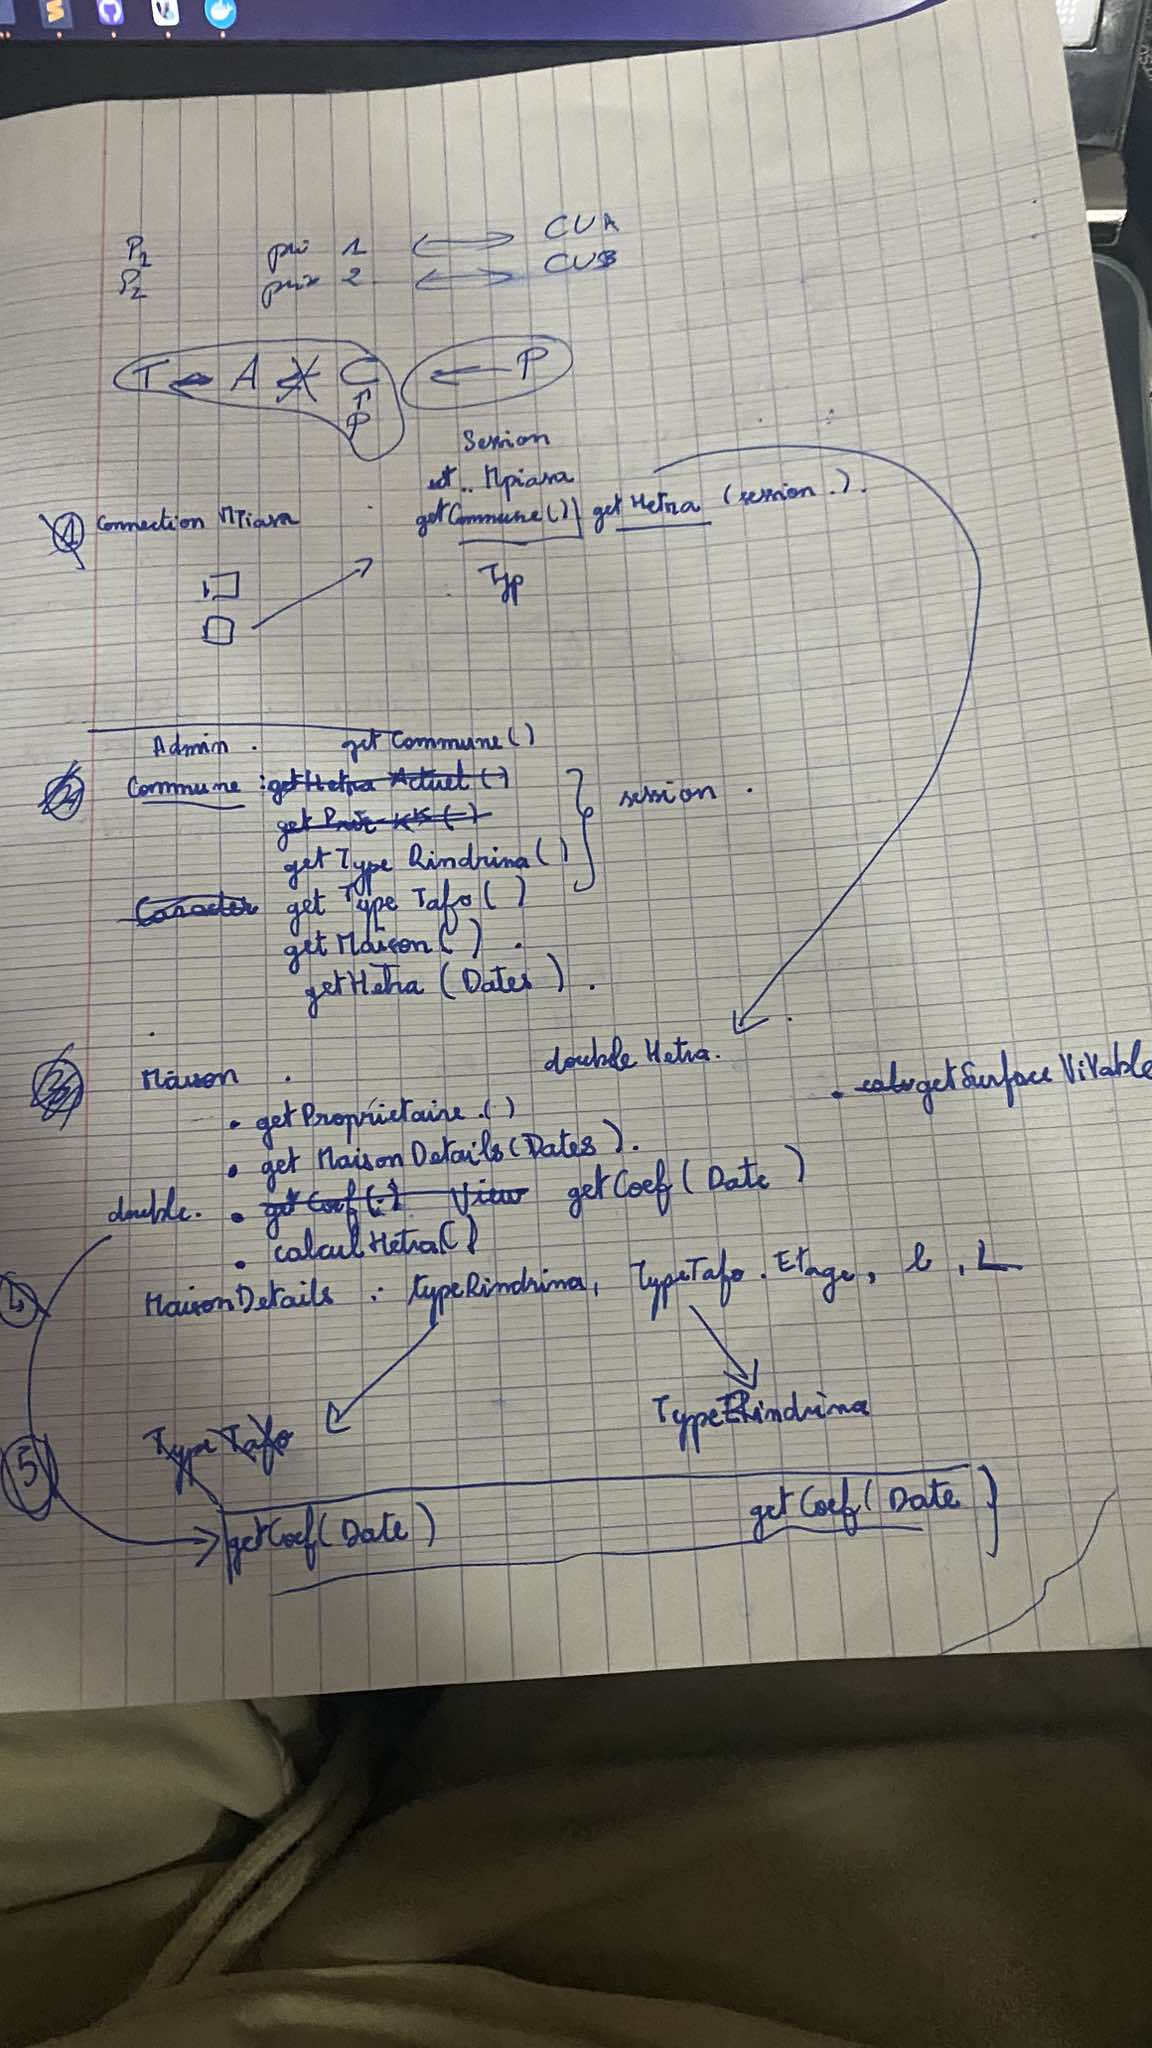 P1 prix 1 ⟷ CUA
P2 prix 2 ⟷ CUB
T ← A ← C ← P
↑
P
Session
Mpiasa
① Connection Mpiasa getCommune() getHetra (session.).
Typ
Admin. getCommune()
② Commune : getHetra Actuel ()
session.
getTypeRindrina()
Caracter getTypeTafo()
getMaison().
getHetra (Dates).
double Hetra.
③ Maison.
• getSurfaceVivable
• getProprietaire.()
• getMaisonDetails(Dates).
double. • getCoef(.) View getCoef(Date)
• calculHetra()
④ MaisonDetails : typeRindrina, TypeTafo. Etage, l, L
TypeTafo TypeRindrina
⑤ getCoef(Date) getCoef(Date